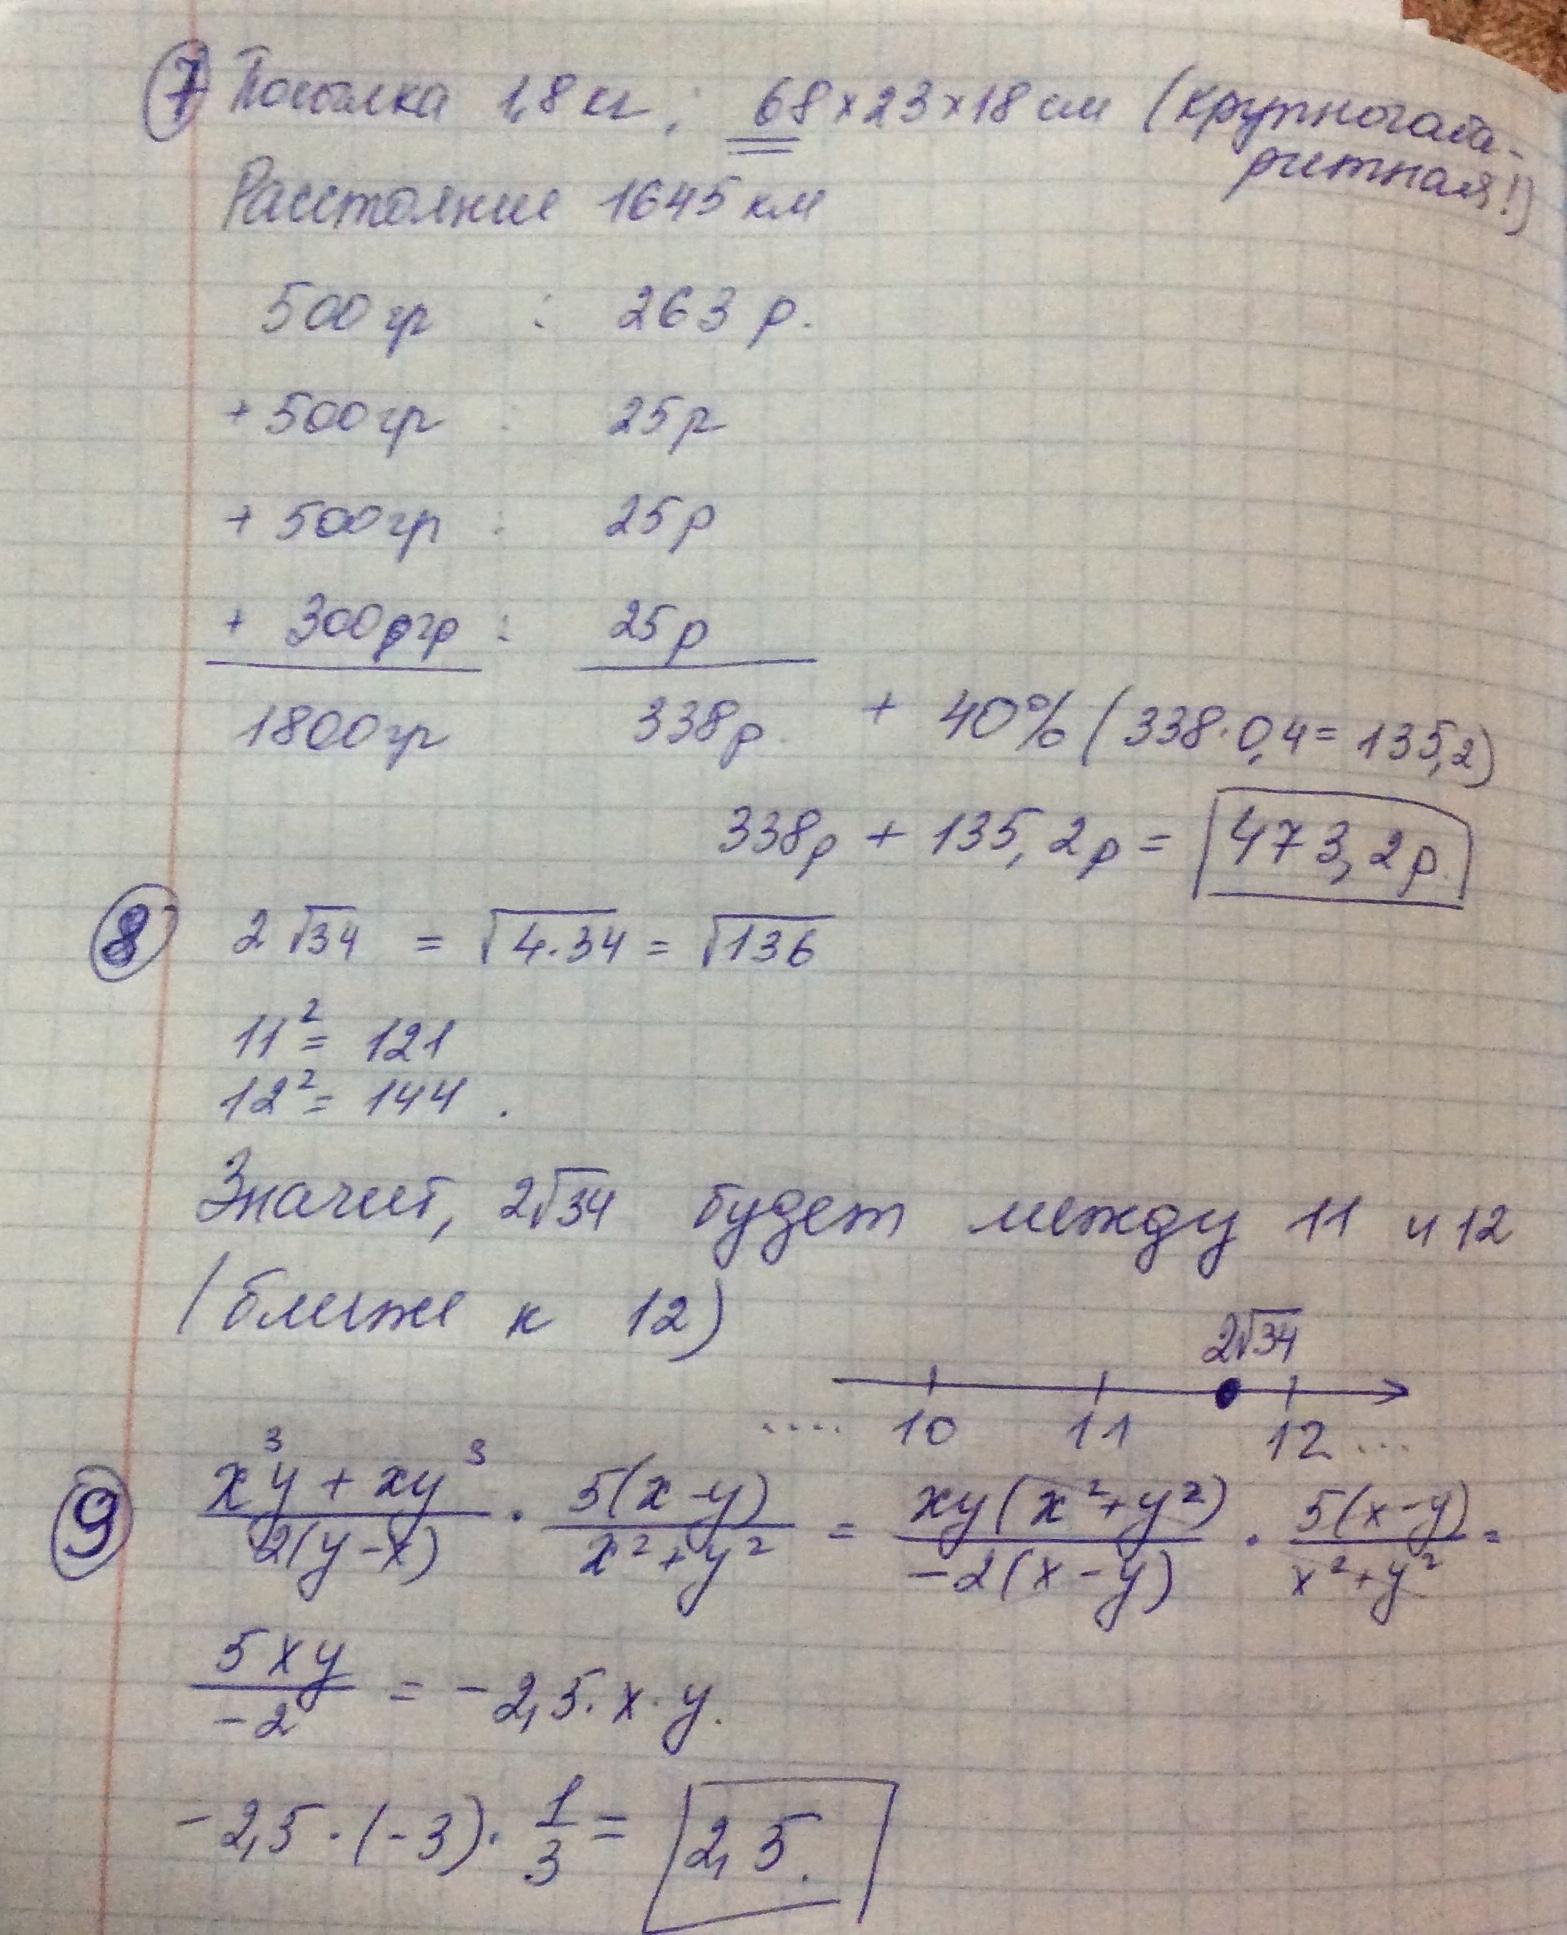 7 Посылка 1,8 кг; 68×23×18 см (крупногаба-
ритная!)
Расстояние 1645 км
500 гр : 263 р.
+ 500 гр : 25 р
+ 500 гр : 25 р
+ 300 гр : 25 р
1800 гр 338 р. + 40% (338·0,4 = 135,2)
338р + 135,2р = 473,2р.
8 2√34 = √4·34 = √136
11² = 121
12² = 144.
Значит, 2√34 будет между 11 и 12
(ближе к 12)
2√34
.... 10 11 12 ...
9 (x³y + xy³)/(2(y-x)) · (5(x-y))/(x²+y²) = (xy(x²+y²))/(-2(x-y)) · (5(x-y))/(x²+y²) =
5xy/-2 = -2,5·x·y.
-2,5·(-3)·1/3 = 2,5.